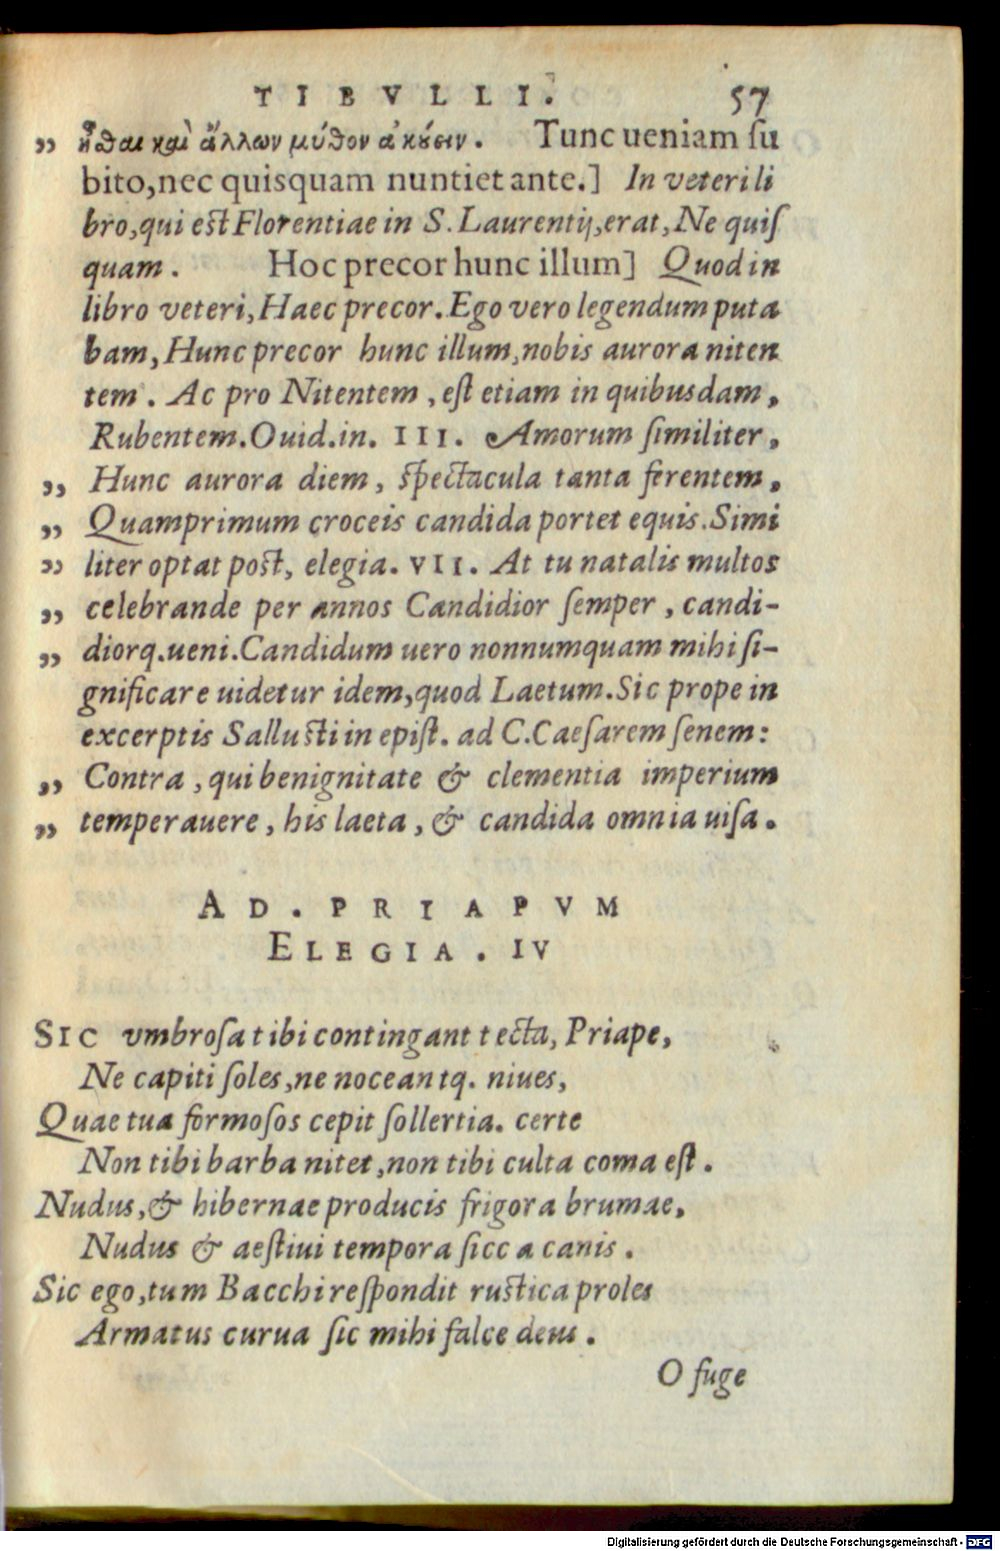 TIBVLLI. 57
„ ἧσθαι καὶ ἄλλων μύθον ἀκούειν. Tunc ueniam ſu
bito, nec quisquam nuntiet ante.] In veteri li
bro, qui eſt Florentiae in S. Laurentij, erat, Ne quiſ
quam. Hoc precor hunc illum] Quod in
libro veteri, Haec precor. Ego vero legendum puta
bam, Hunc precor hunc illum, nobis aurora niten
tem. Ac pro Nitentem, eſt etiam in quibusdam,
Rubentem. Ouid. in. III. Amorum ſimiliter,
„ Hunc aurora diem, ſpectacula tanta ferentem,
„ Quamprimum croceis candida portet equis. Simi
„ liter optat poſt, elegia. VII. At tu natalis multos
„ celebrande per annos Candidior ſemper, candi-
„ diorq. ueni. Candidum uero nonnumquam mihi ſi-
gnificare uidetur idem, quod Laetum. Sic prope in
excerptis Salluſti in epiſt. ad C. Caeſarem ſenem:
„ Contra, qui benignitate & clementia imperium
„ temperauere, his laeta, & candida omnia uiſa.
AD. PRIAPVM
ELEGIA. IV
SIC vmbroſa tibi contingant tecta, Priape,
Ne capiti ſoles, ne noceantq. niues,
Quae tua formoſos cepit ſollertia. certe
Non tibi barba nitet, non tibi culta coma eſt.
Nudus, & hibernae producis frigora brumae,
Nudus & aeſtiui tempora ſicca canis.
Sic ego, tum Bacchi reſpondit ruſtica proles
Armatus curua ſic mihi falce deus.
O fuge
Digitalisierung gefördert durch die Deutsche Forschungsgemeinschaft - DFG